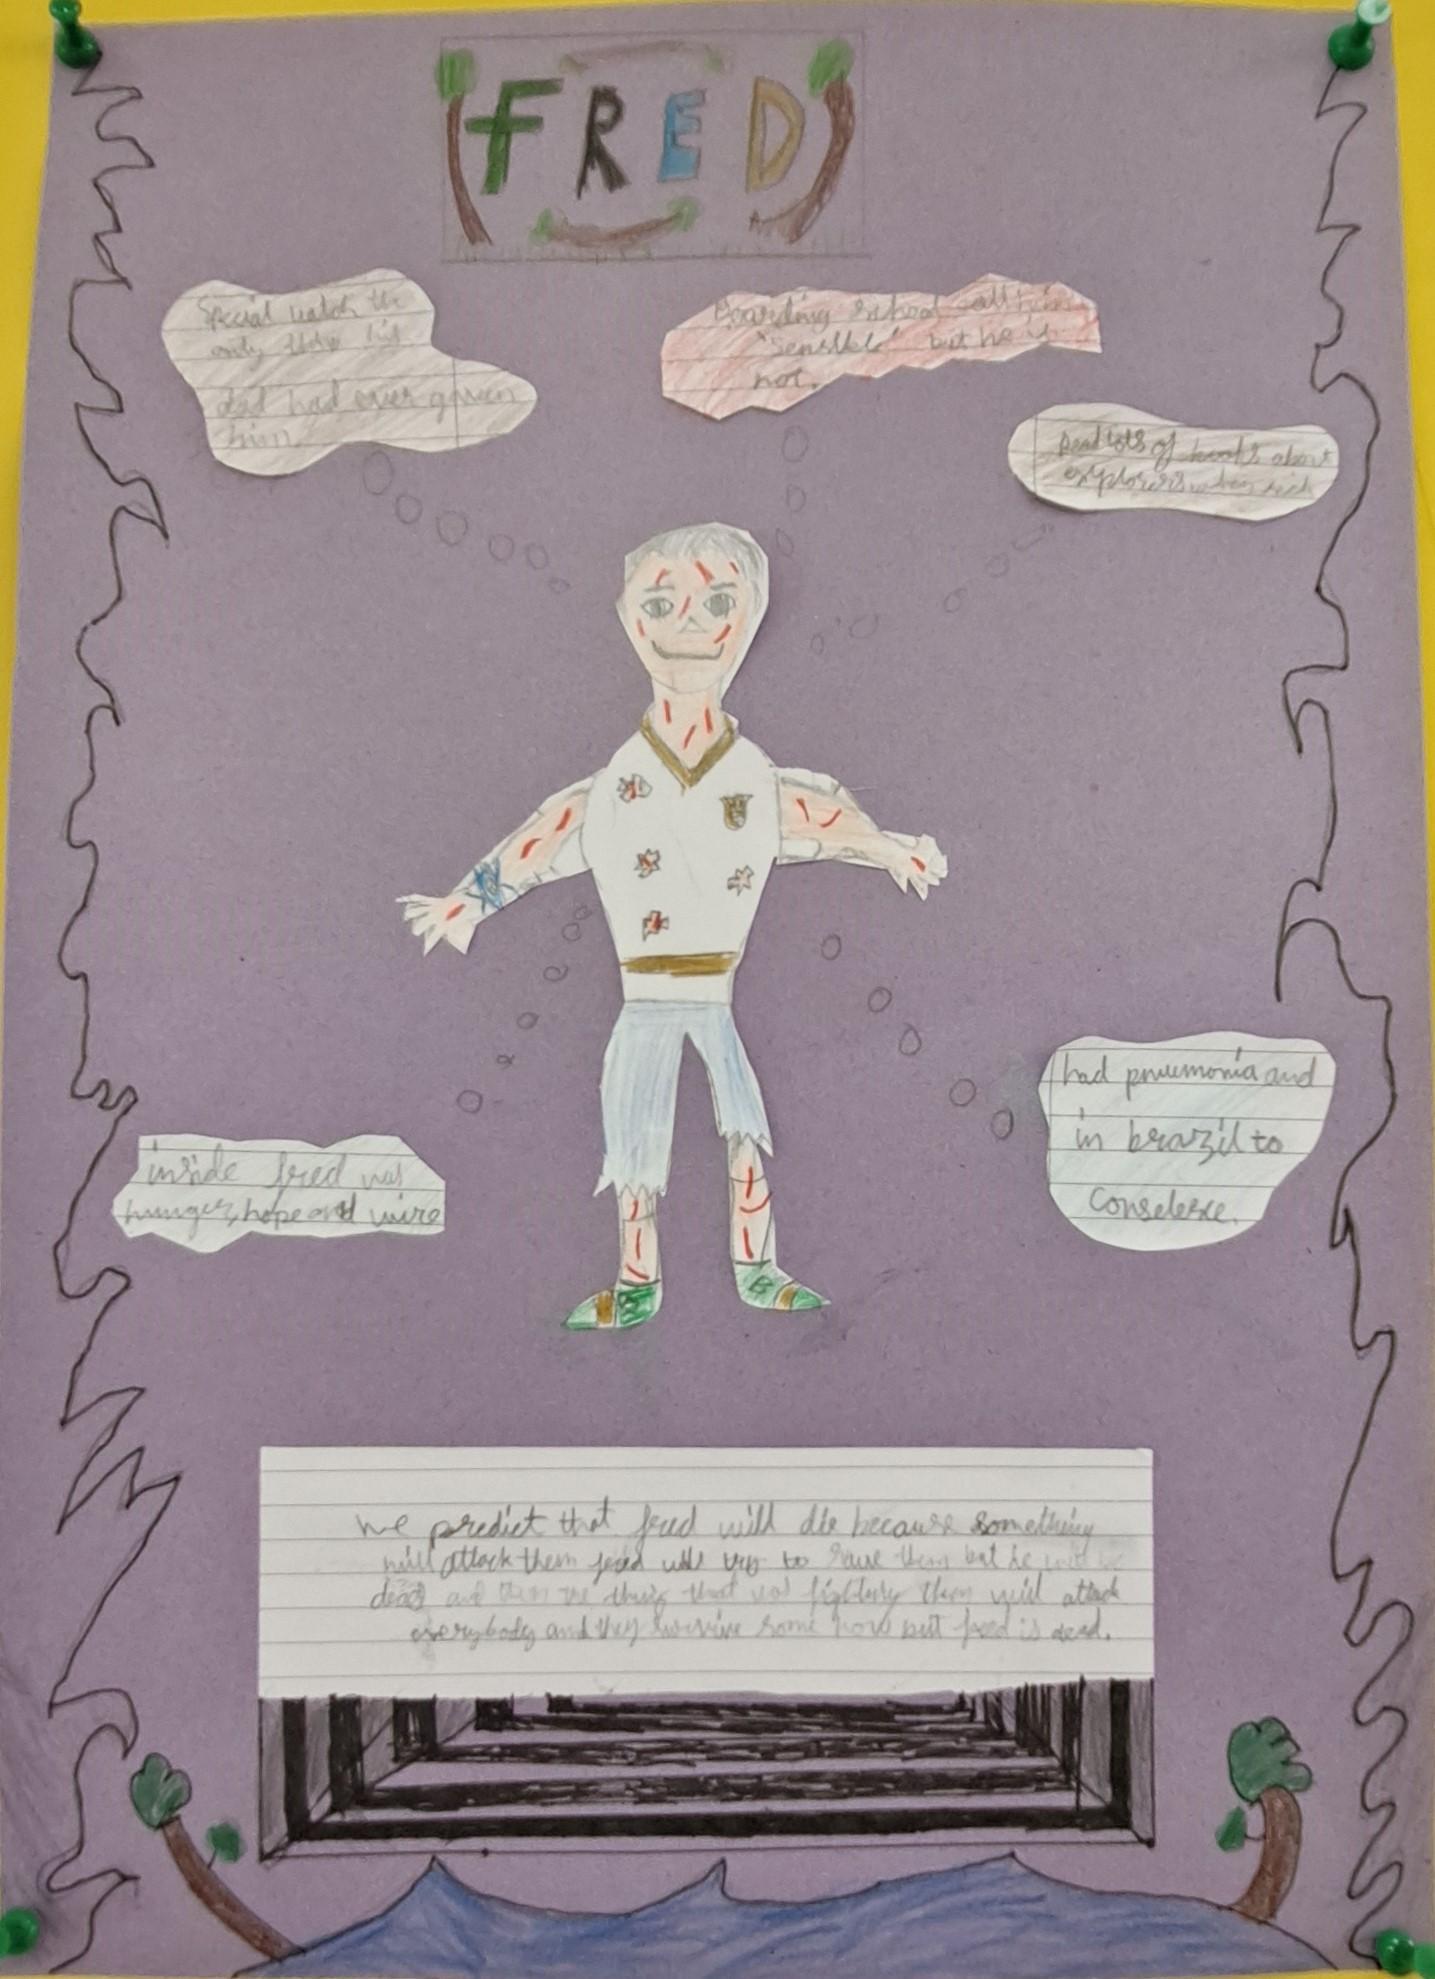 FRED
Special watch the
only thing his
dad had ever gaven
him
Boarding school call him
"sensible" but he is
not.
Read lots of books about
explorers when sick
inside fred was
hunger, hope and wire
had pnuemonia and
in brazil to
conselesce.
B
B
We predict that fred will die because something
will attack them fred will try to save them but he will be
dead and then the thing that was fighting them will attack
everybody and they survive some how but fred is dead.